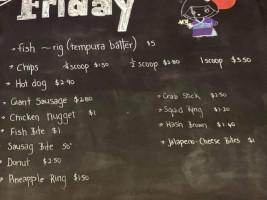 Friday
→ fish ~ rig (tempura batter) $5
→ Chips ¼ scoop $1.50 ½ scoop $2.80 1 scoop $3.50
→ Hot dog $2.90
→ Giant Sausage $2.80
→ Chicken Nugget $1
→ Fish Bite $1
Sausag Bite 50¢
→ Donut $2.50
→ Pineapple Ring $1.50
→ Crab Stick $2.50
→ Squid Ring $1.20
→ Hash Brown $1.60
→ Jalapeno-Cheese Bites $1